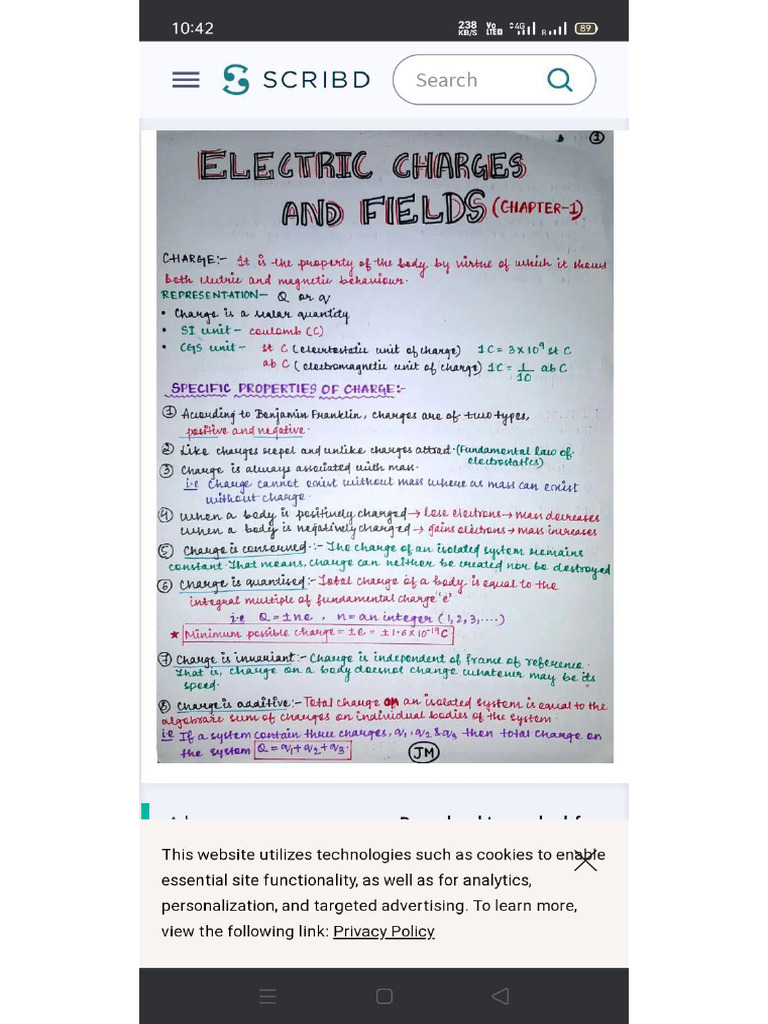 10:42 238 KB/S Vo LTE 4G R 89
SCRIBD Search
1
ELECTRIC CHARGES
AND FIELDS (CHAPTER-1)
CHARGE:- It is the property of the body by virtue of which it shows
both electric and magnetic behaviour.
REPRESENTATION- Q or q
• Charge is a scalar quantity
• SI unit - coulomb (C)
• CGS unit- st C (electrostatic unit of charge) 1C = 3×10⁹ st C
ab C (electromagnetic unit of charge) 1C = 1/10 ab C
SPECIFIC PROPERTIES OF CHARGE:-
① According to Benjamin Franklin, charges are of two types,
positive and negative.
② Like charges repel and unlike charges attract. (Fundamental law of
electrostatics)
③ Charge is always associated with mass.
i.e Charge cannot exist without mass where as mass can exist
without charge.
④ When a body is positively charged → lose electrons → mass decreases
When a body is negatively charged → gains electrons → mass increases
⑤ Charge is conserved.:- The charge of an isolated system remains
constant. That means, charge can neither be created nor be destroyed
⑥ Charge is quantised:- Total charge of a body is equal to the
integral multiple of fundamental charge "e"
i.e Q = ±ne , n = an integer (1,2,3,....)
★ Minimum possible charge = ±e = ±1.6×10⁻¹⁹C
⑦ Charge is invariant:- Charge is independent of frame of reference.
That is, charge on a body doesnot change whatever may be its
speed.
⑧ Charge is additive:- Total charge on an isolated system is equal to the
algebraic sum of charges on individual bodies of the system.
i.e If a system contain three charges, q₁, q₂ & q₃ then total charge on
the system Q = q₁+q₂+q₃.
JM
This website utilizes technologies such as cookies to enable
essential site functionality, as well as for analytics,
personalization, and targeted advertising. To learn more,
view the following link: Privacy Policy